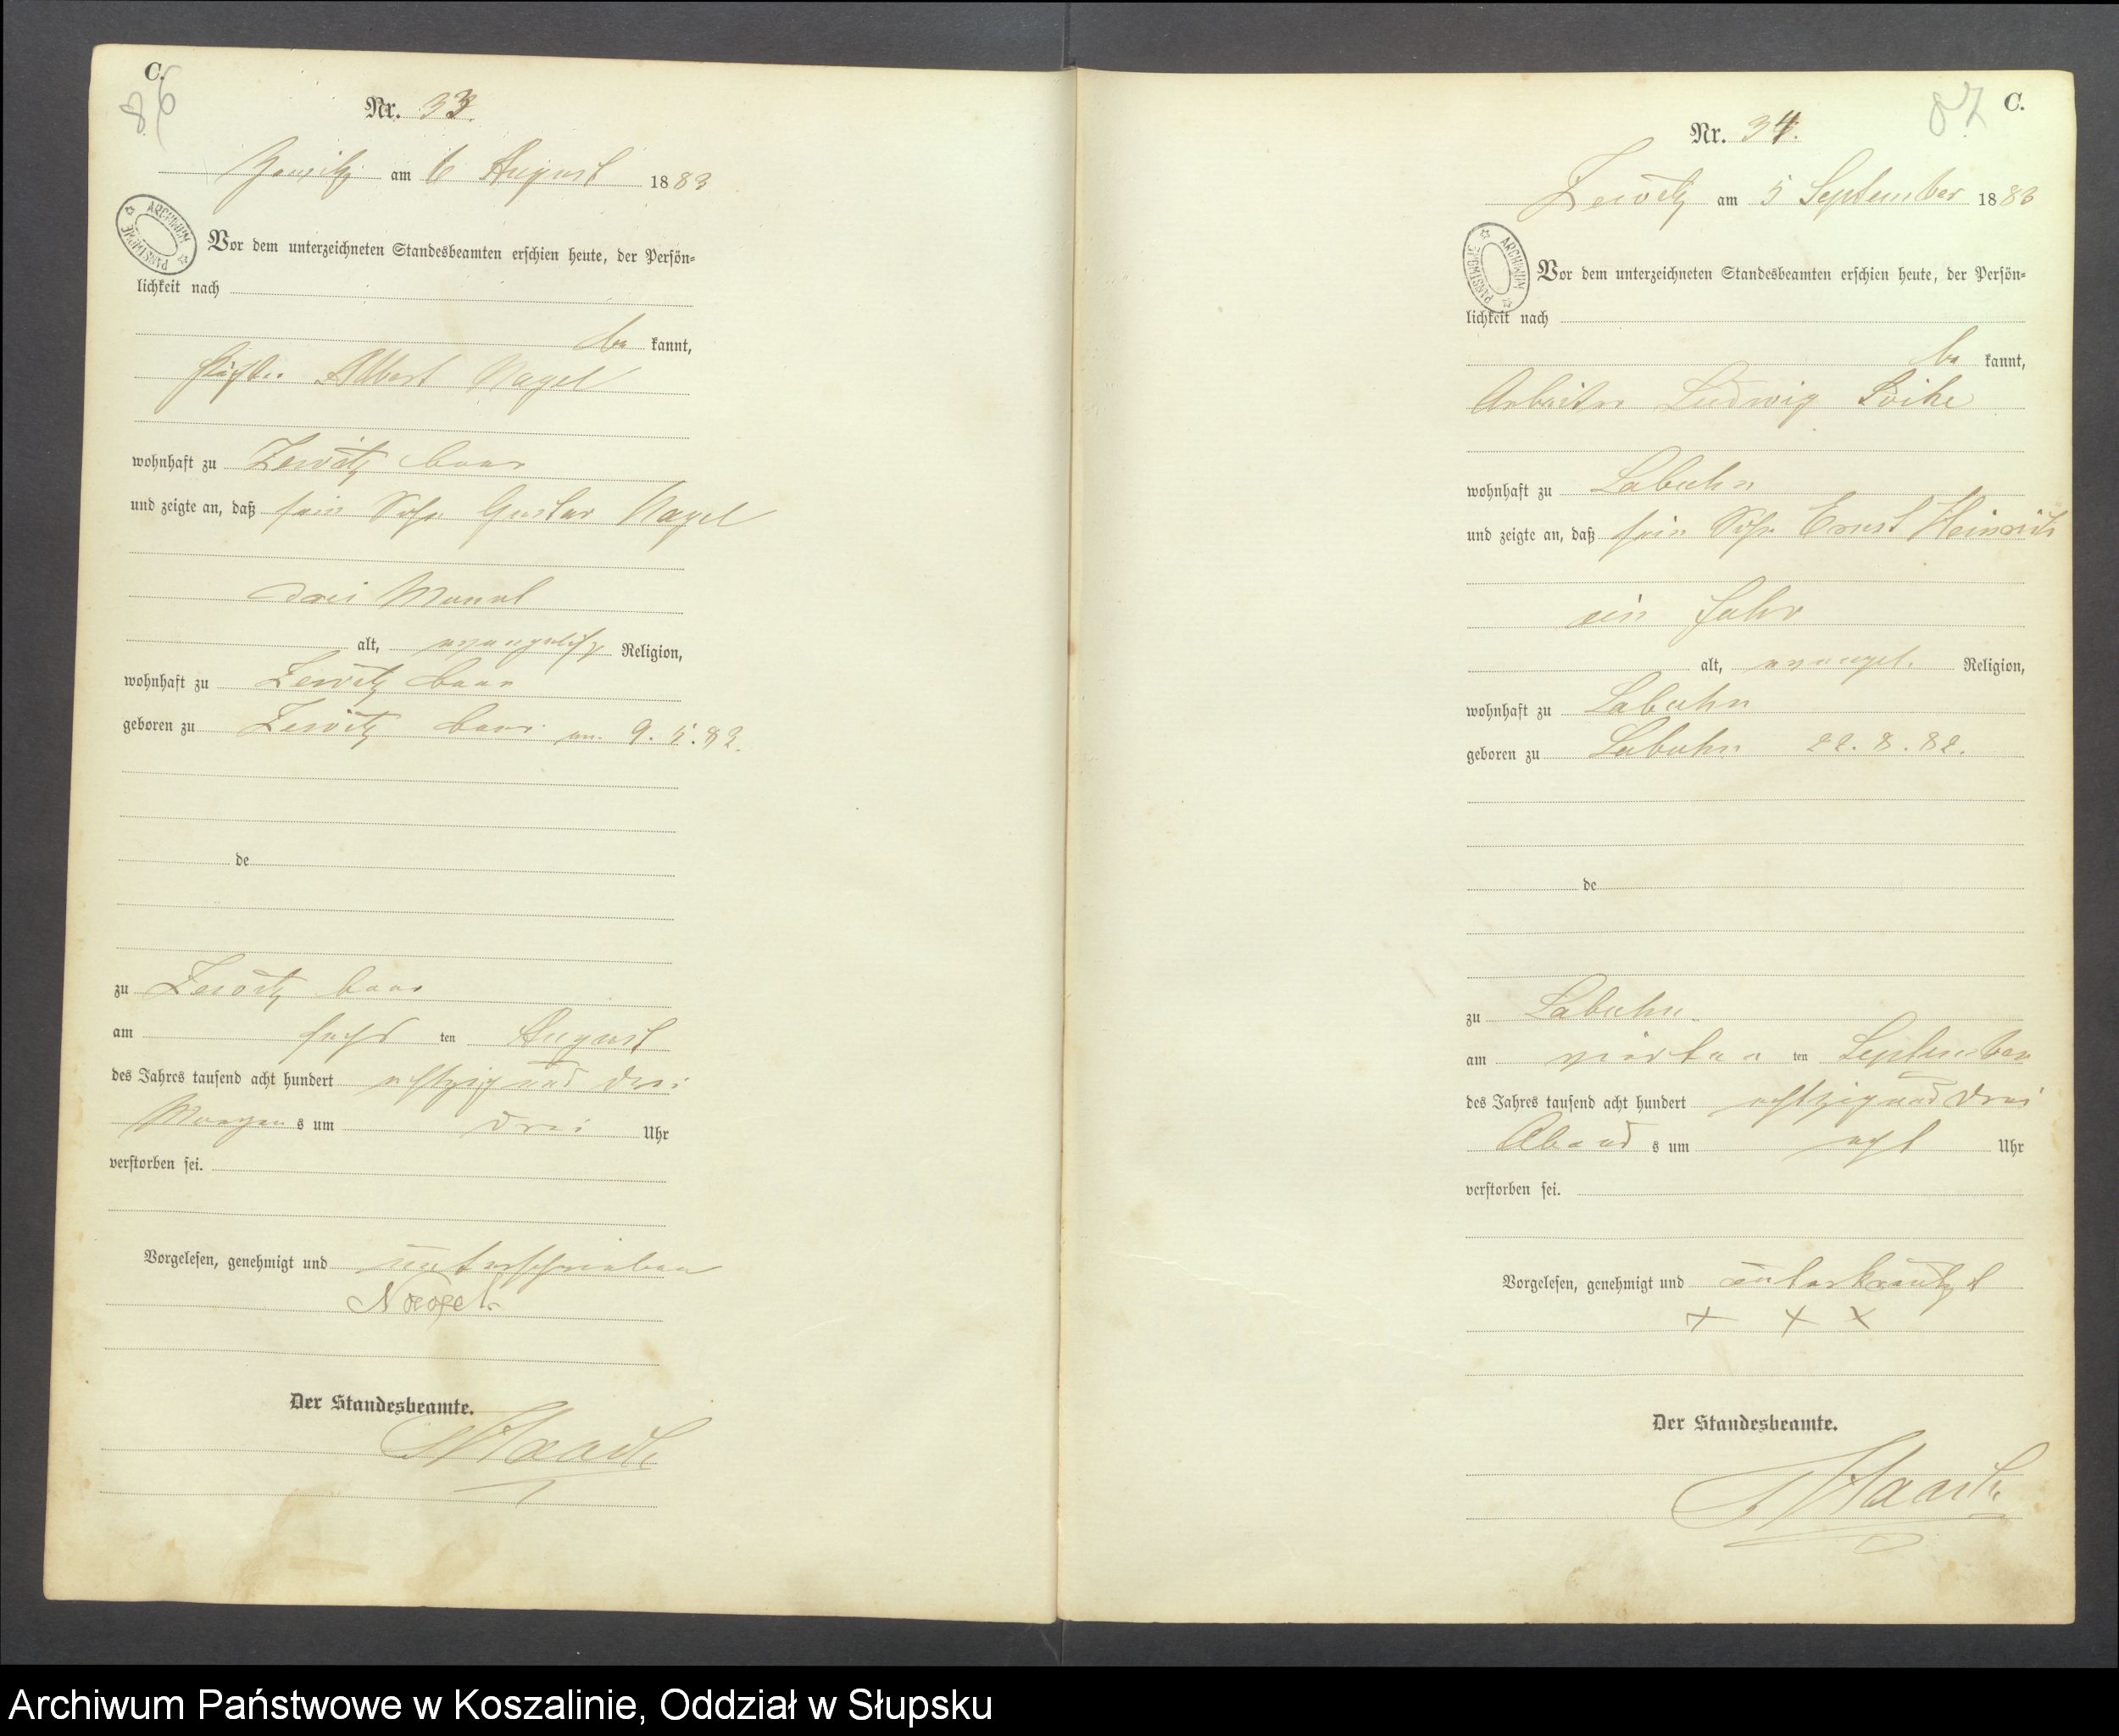 C.
86
Nr. 33.
am 6 August 1883
ARCHIWUM PAŃSTWOWE
Vor dem unterzeichneten Standesbeamten erschien heute, der Persön=
lichkeit nach
be kannt,
Albert Nagel
wohnhaft zu Zewitz
und zeigte an, daß sein Sohn Gustav Nagel
drei Monat
alt, evangelisch Religion,
wohnhaft zu Zewitz
geboren zu Zewitz am 9. 5. 83.
de
zu Zewitz
am sechs ten August
des Jahres tausend acht hundert achtzig und drei
Morgen s um drei Uhr
verstorben sei.
Vorgelesen, genehmigt und unterschrieben
Nagel
Der Standesbeamte.
C.
87
Nr. 34.
Zewitz am 5 September 1883
ARCHIWUM PAŃSTWOWE
Vor dem unterzeichneten Standesbeamten erschien heute, der Persön=
lichkeit nach
be kannt,
Arbeiter Ludwig
wohnhaft zu Labuhn
und zeigte an, daß sein Sohn Ernst Heinrich
ein Jahr
alt, evangel. Religion,
wohnhaft zu Labuhn
geboren zu Labuhn 22. 8. 82.
de
zu Labuhn
am vierten ten September
des Jahres tausend acht hundert achtzig und drei
Abend s um acht Uhr
verstorben sei.
Vorgelesen, genehmigt und unterkreuzt
+ + +
Der Standesbeamte.
Archiwum Państwowe w Koszalinie, Oddział w Słupsku